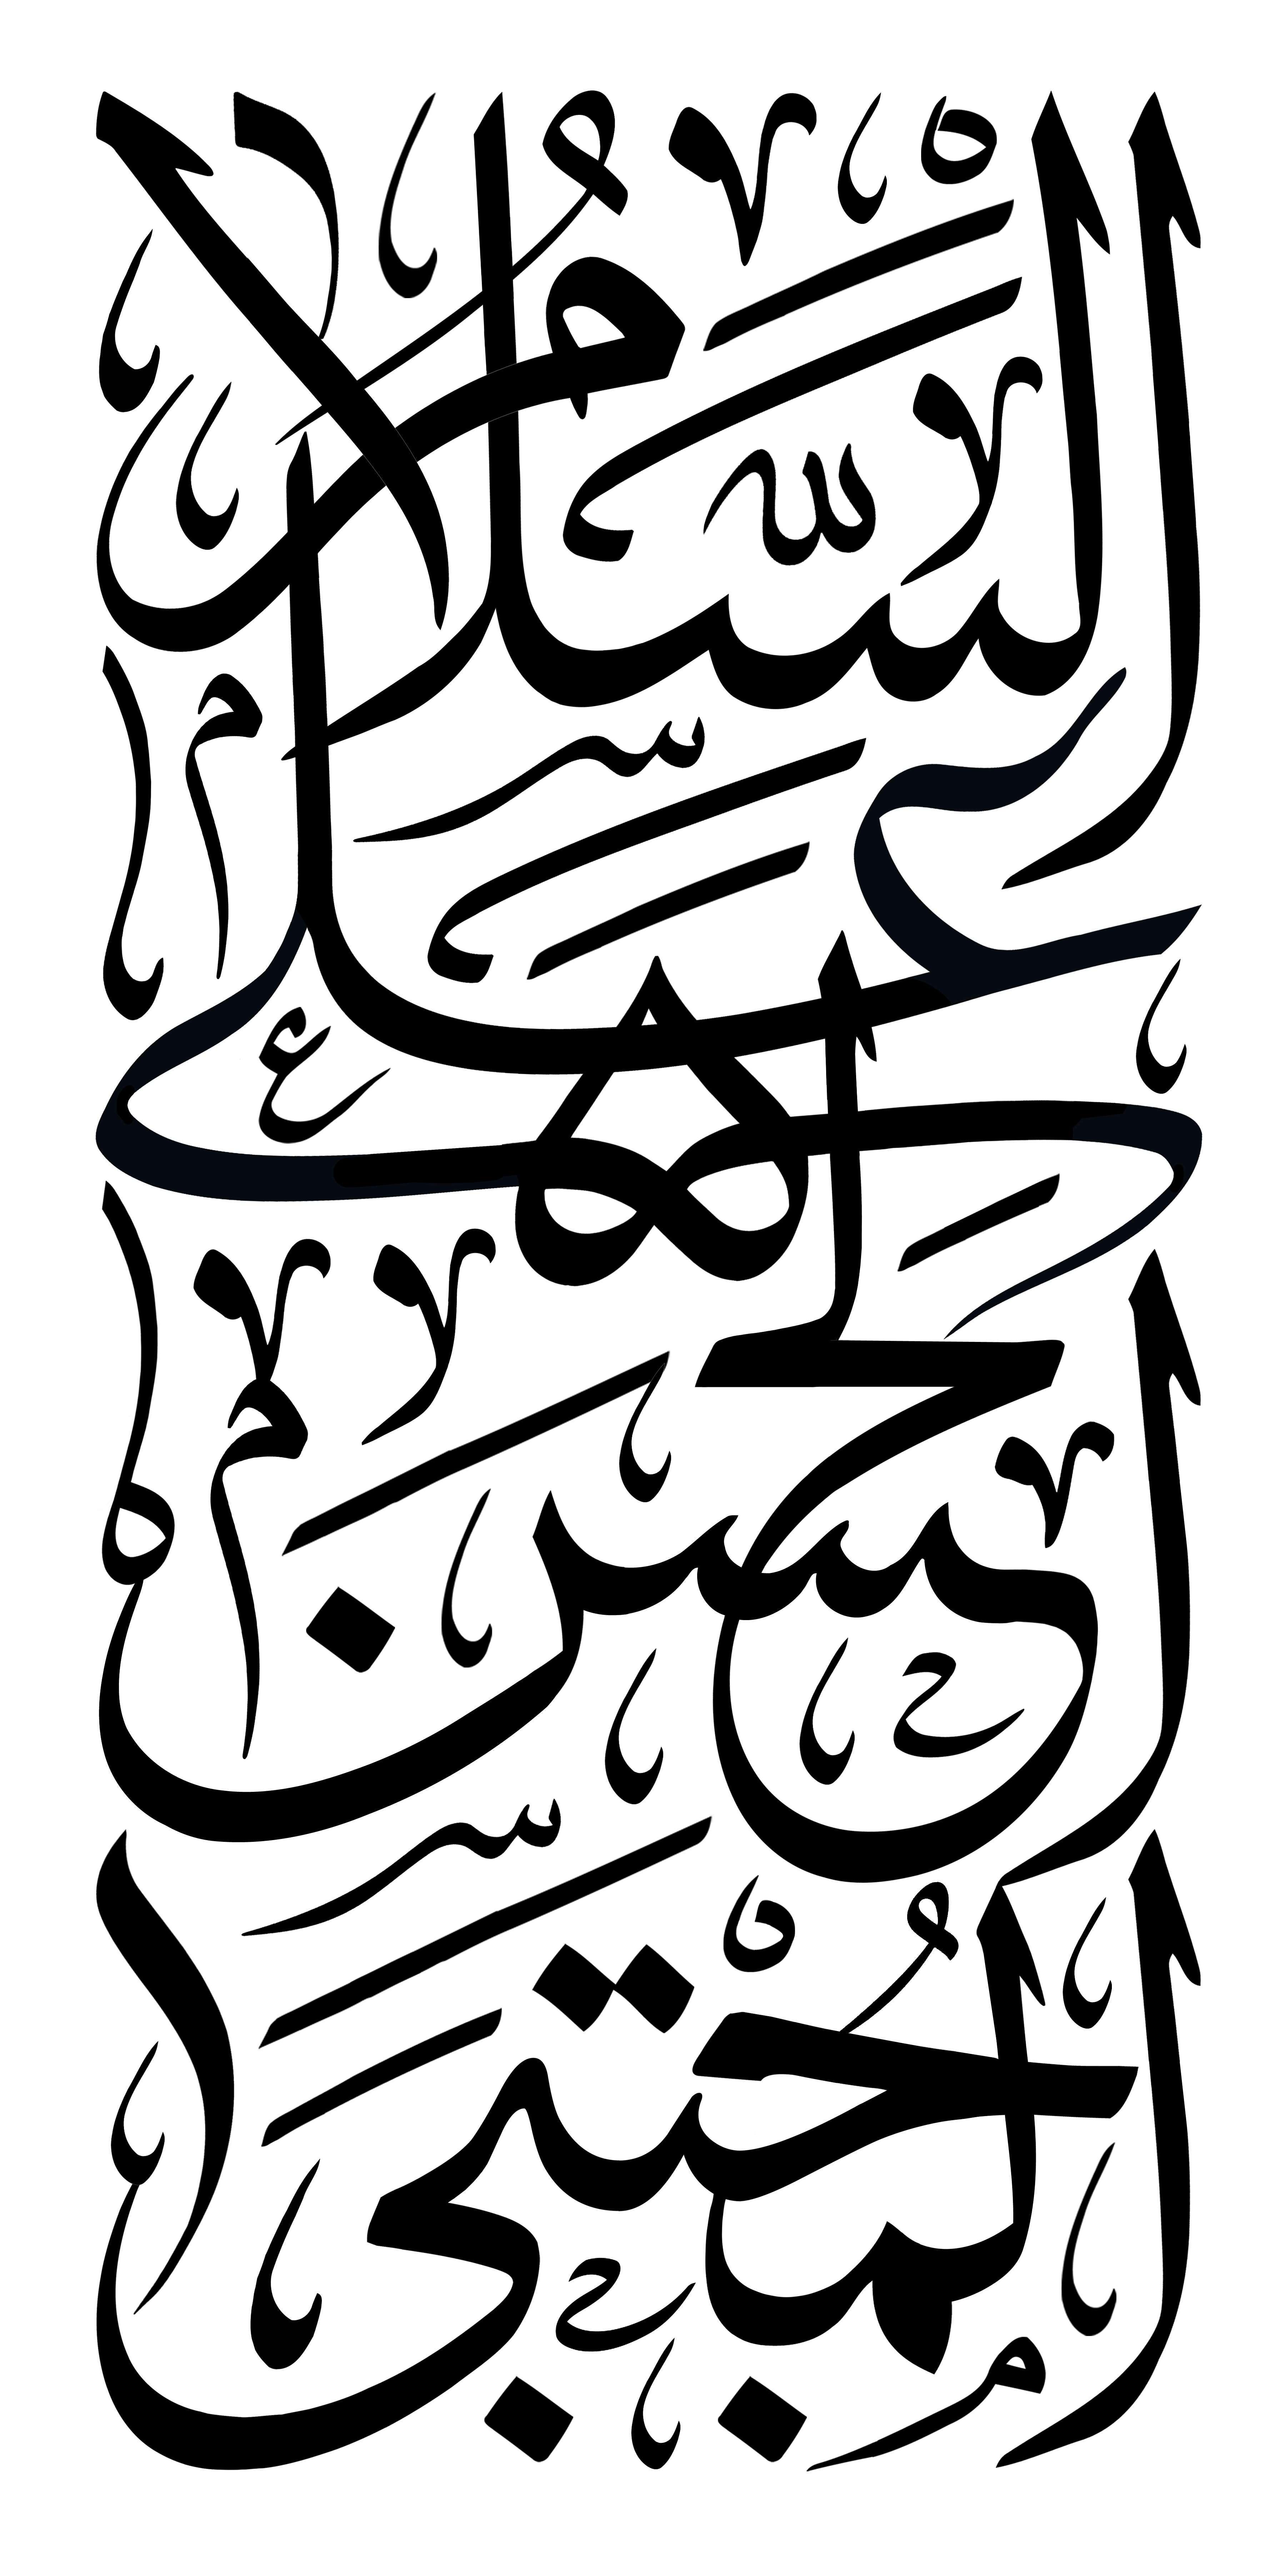 السَّلَامُ عَلَى
الْحَسَنِ
الْمُجْتَبَى